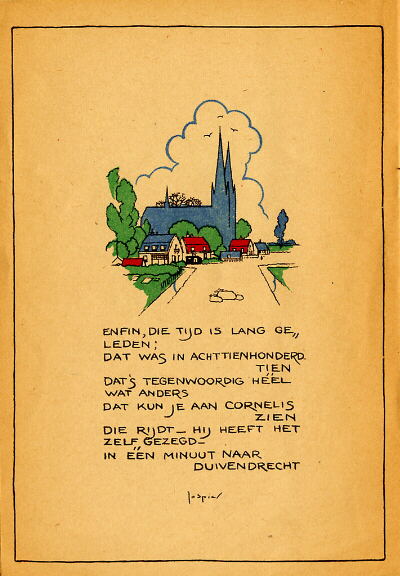 ENFIN, DIE TIJD IS LANG GE„
LEDEN;
DAT WAS IN ACHTTIENHONDERD.
TIEN
DAT'S TEGENWOORDIG HÉÉL
WAT ANDERS
DAT KUN JE AAN CORNELIS
ZIEN
DIE RIJDT — HIJ HEEFT HET
ZELF GEZEGD —
IN ÉÉN MINUUT NAAR
DUIVENDRECHT